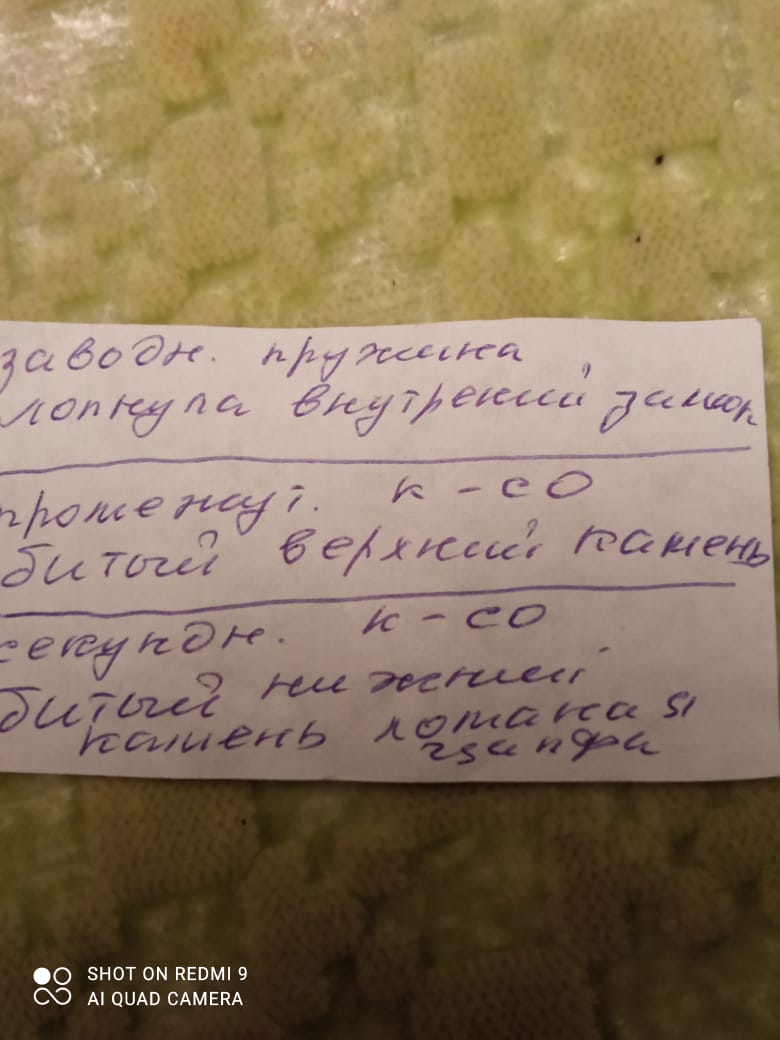 заводн. пружина
лопнула внутрений замок
промежут. к-со
битый верхний камень
секундн. к-со
битый нижний
камень ломана я
цапфа
SHOT ON REDMI 9
AI QUAD CAMERA